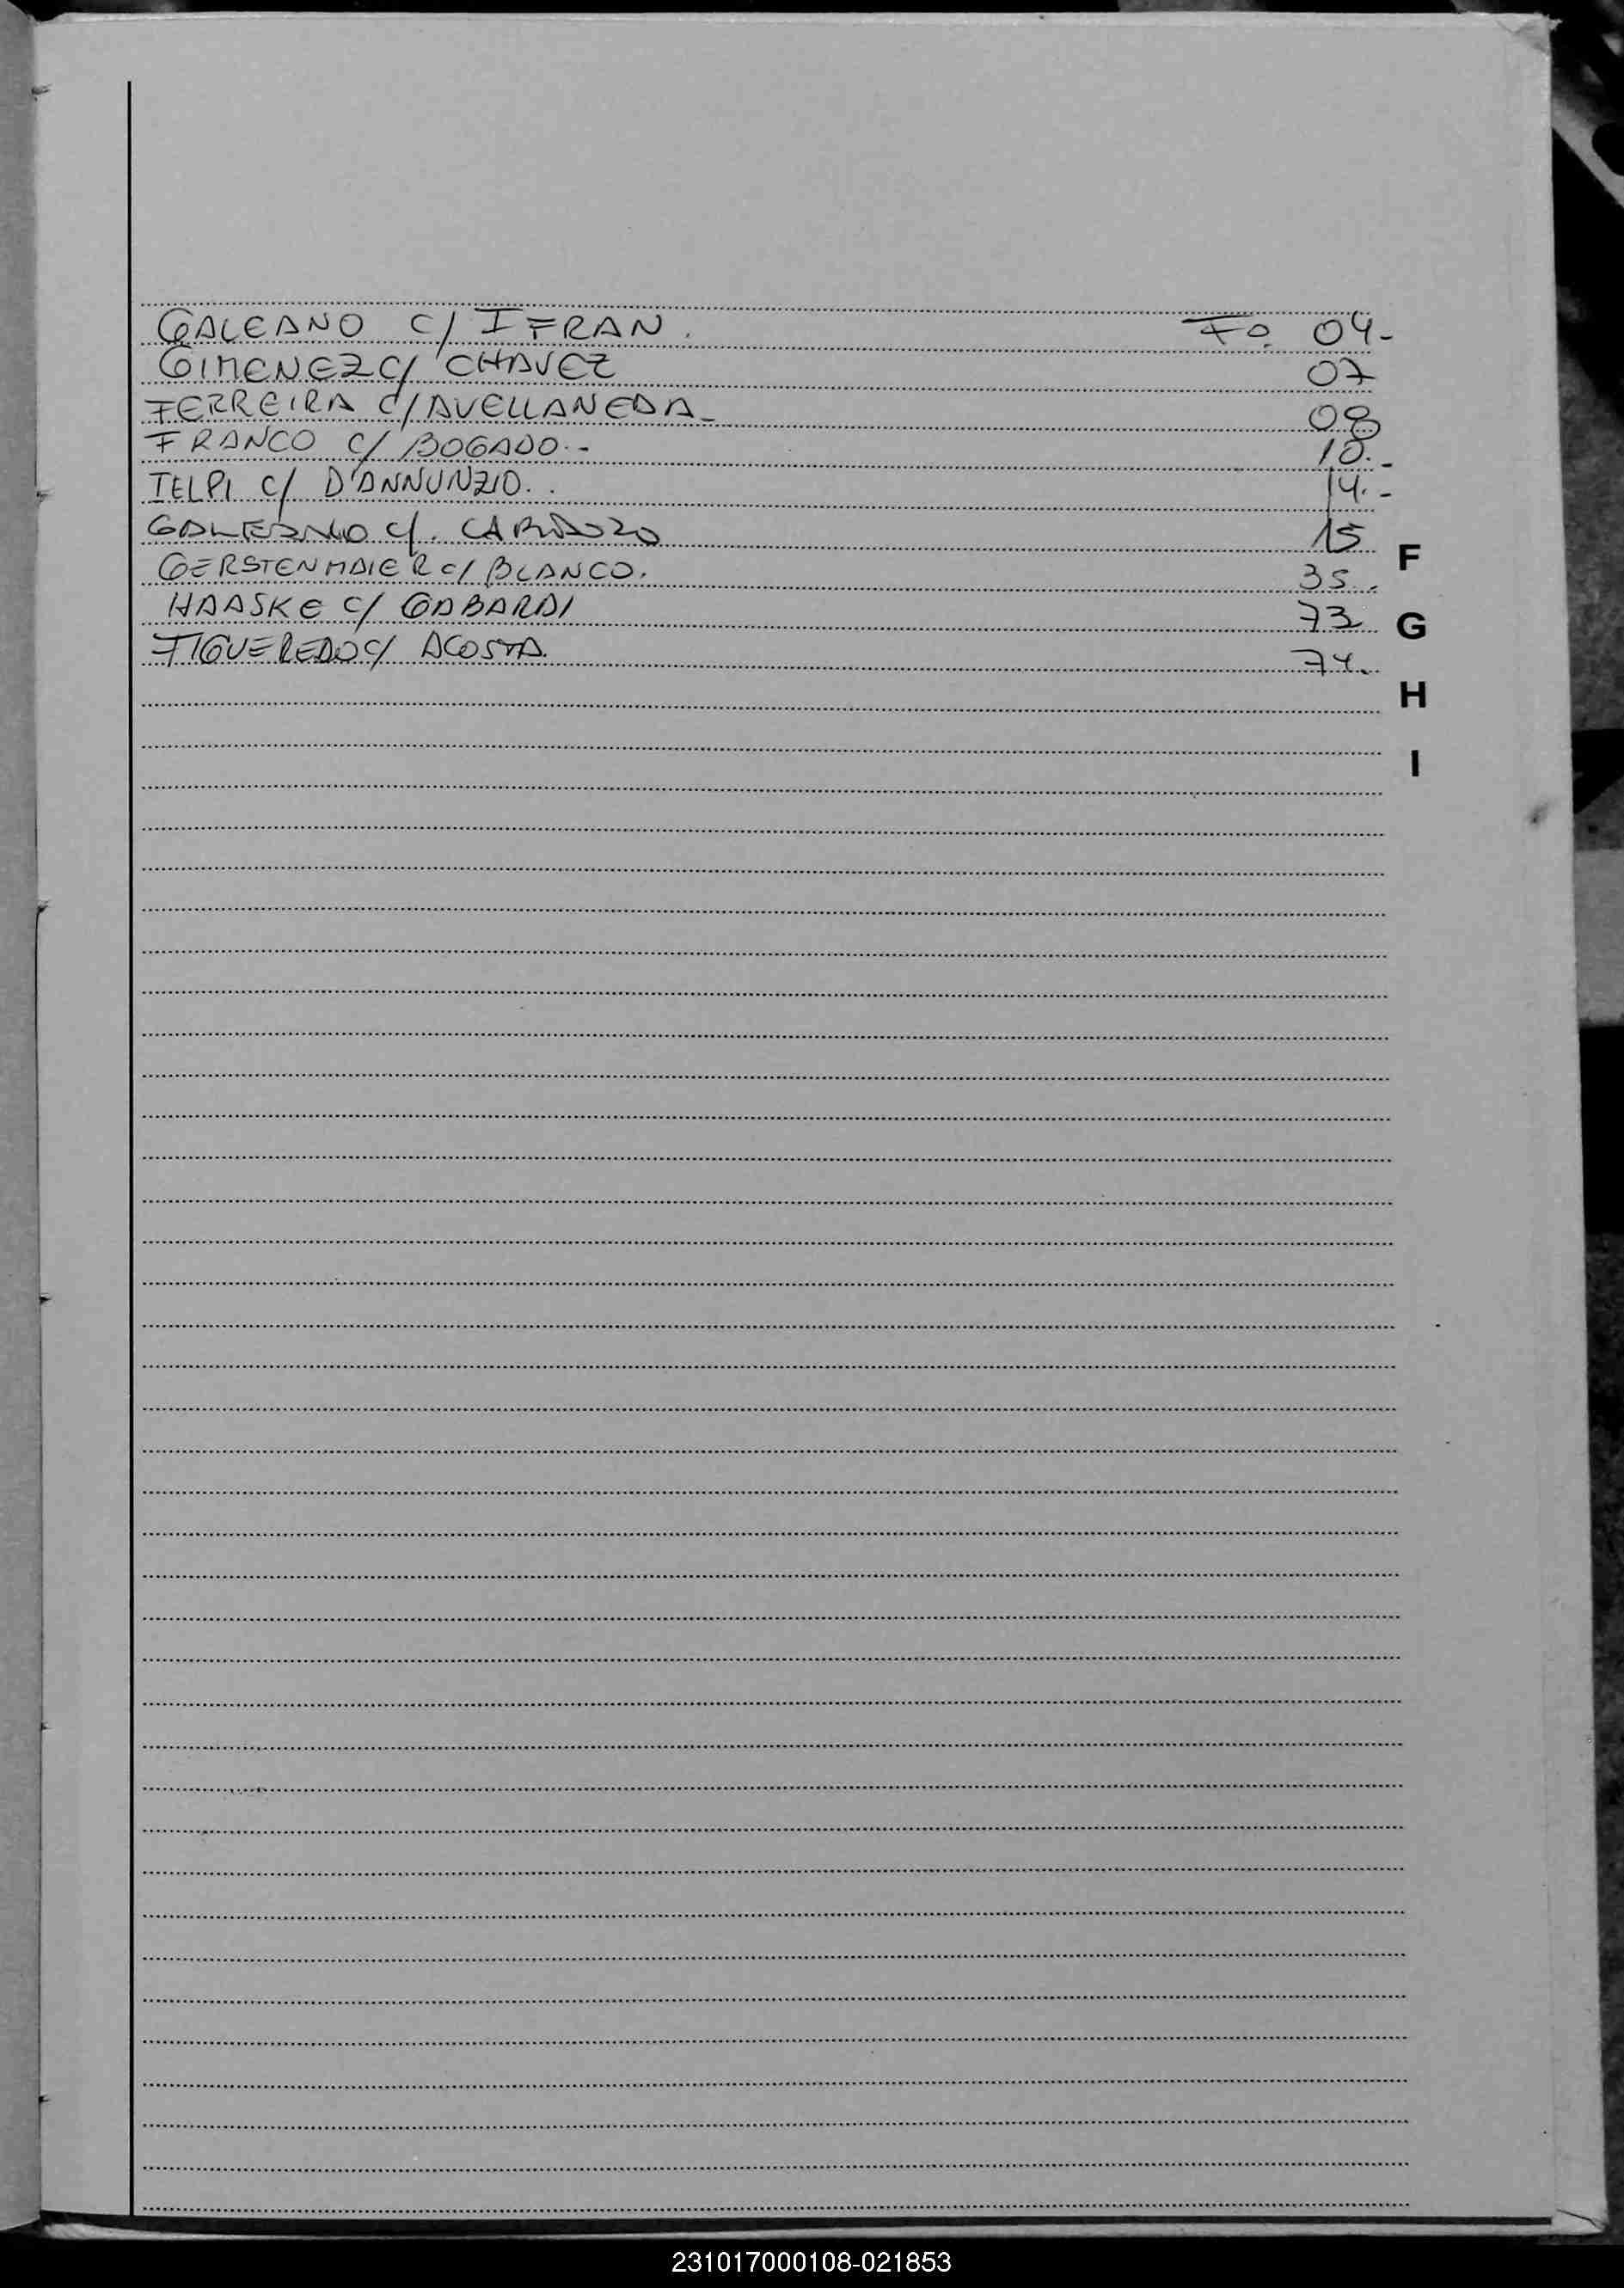 GALEANO C/ IFRAN. Fo. 04.-
GIMENEZ C/ CHAVEZ 07
FERREIRA C/ AVELLANEDA- 08
FRANCO C/ BOGADO.- 10.-
TELPI C/ D'ANNUNZIO. 14.-
GALEANO C/. CARDOZO 15
GERSTENMAIER C/ BLANCO. 35.
HAASKE C/ GABARDI 73
FIGUEREDO C/ ACOSTA. 74.
F
G
H
I
231017000108-021853